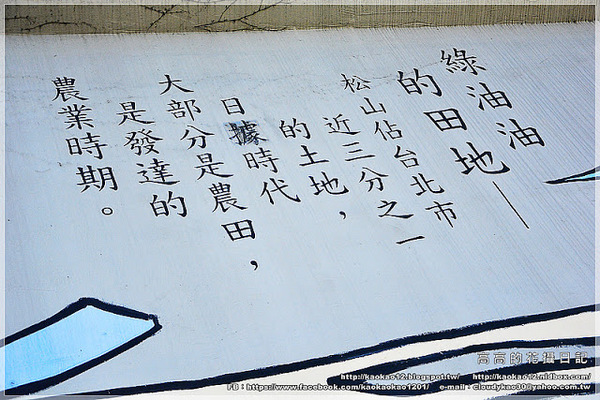 綠油油
的田地——
松山佔台北市
近三分之一
的土地，
日據時代
大部分是農田，
是發達的
農業時期。
高高的攝日記
http://kaokao12.blogspot.tw/ http://kaokao12.nidbox.com/
FB：https://www.facebook.com/kaokaokao1201/ e-mail：cloudykao30@yahoo.com.tw